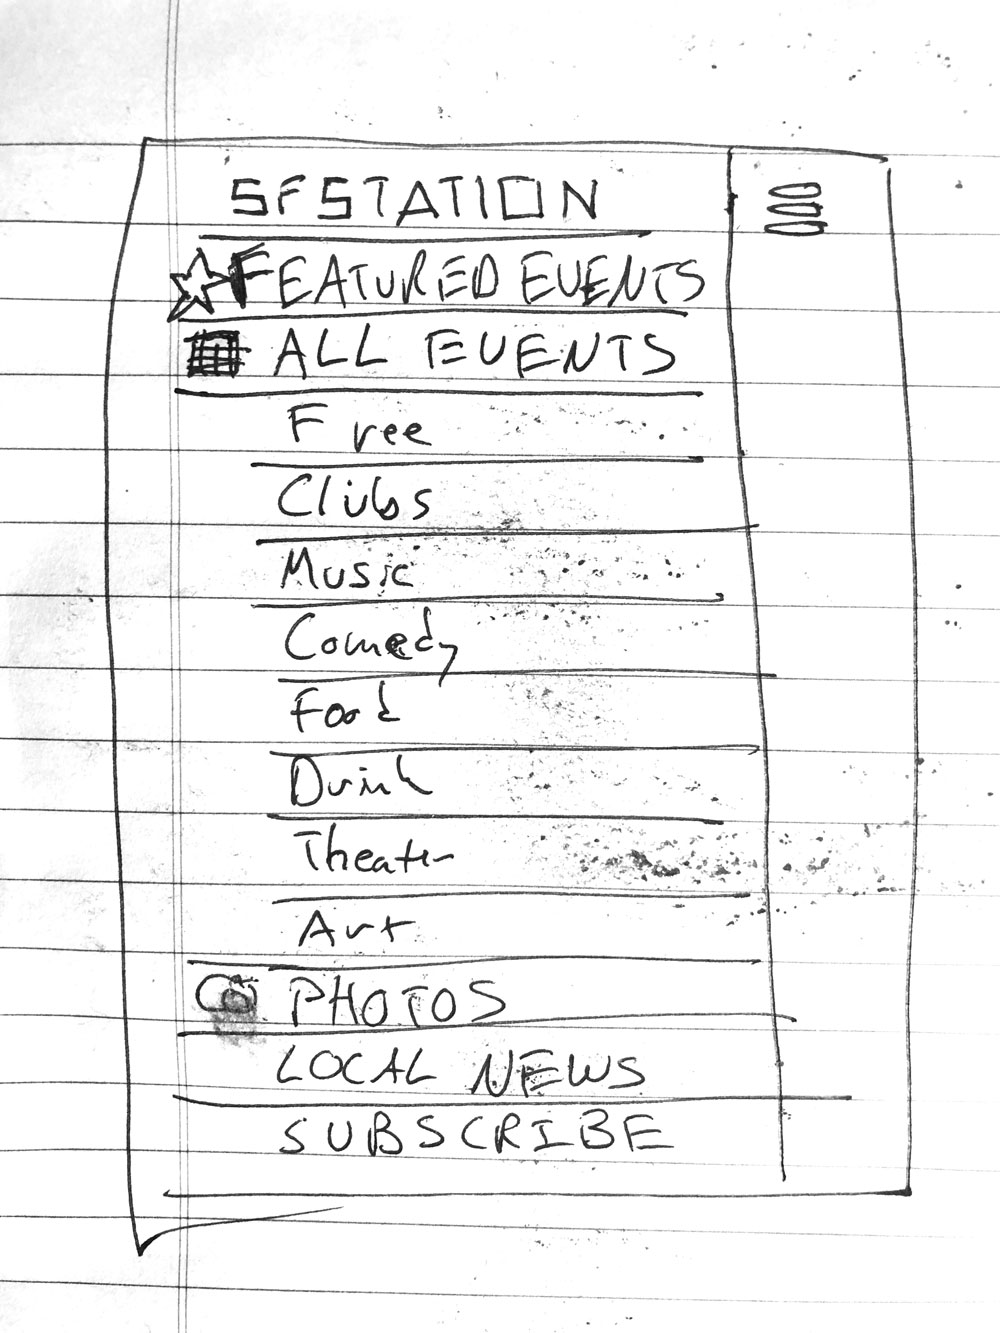 SFSTATION
FEATURED EVENTS
ALL EVENTS
Free
Clubs
Music
Comedy
Food
Drink
Theater
Art
PHOTOS
LOCAL NEWS
SUBSCRIBE